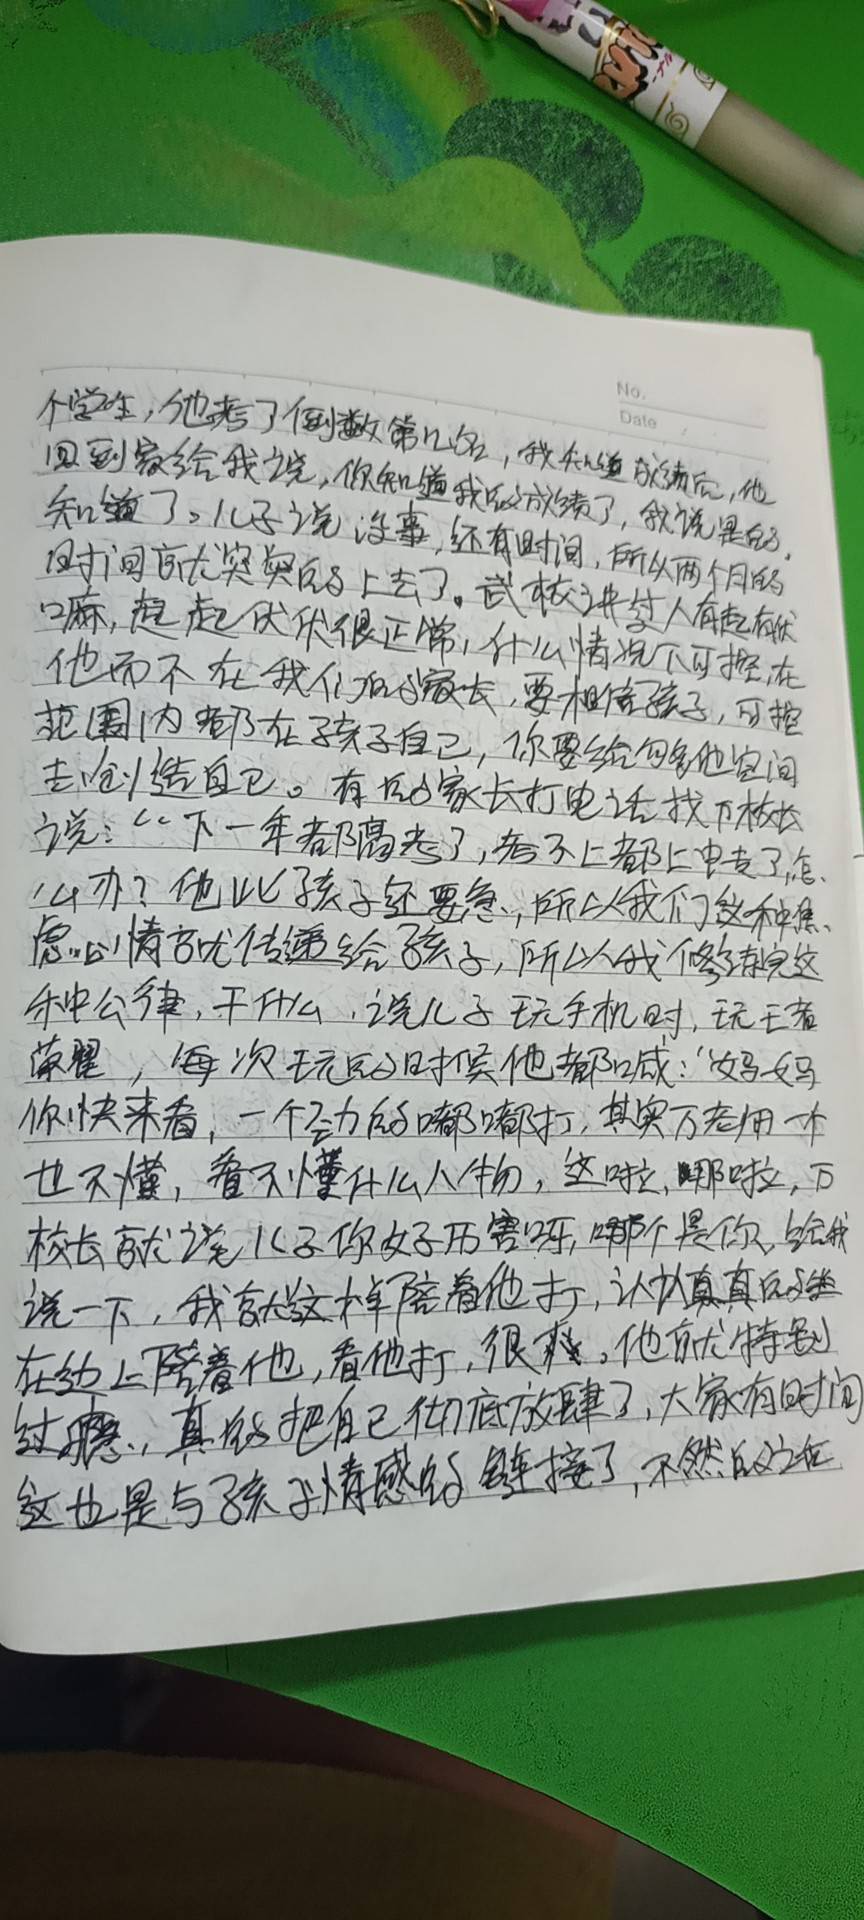 No.
Date
个学生，他考了倒数第几名，我知道成绩后，他
回到家给我说，你知道我的成绩了，我说是的，
知道了。儿子说没事，还有时间，所以两个月的
时间就突突的上去了。武校讲学人有起有伏
嘛，起起伏伏很正常，什么情况下可控，在
他而不在我们的家长，要相信孩子，可控
范围内都在孩子自己，你要给够他空间
去创造自己。有的家长打电话找万校长
说：“下一年都高考了，考不上都上中专了，怎
么办？他比孩子还要急，所以我们这种焦
虑的情就传递给孩子，所以我修练完这
种公律，干什么，说儿子玩手机时，玩王者
荣耀，每次玩的时候他都喊：“妈妈
你快来看，一个劲的嘟嘟打，其实万老师一个
也不懂，看不懂什么人物，这啦，哪啦，万
校长就说儿子你好历害呀，哪个是你，给我
说一下，我就这样陪着他打，认认真真的坐
在边上陪着他，看他打，很爽。他就特别
过瘾，真的把自己彻底放肆了，大家有时间
这也是与孩子情感的链接了，不然的话